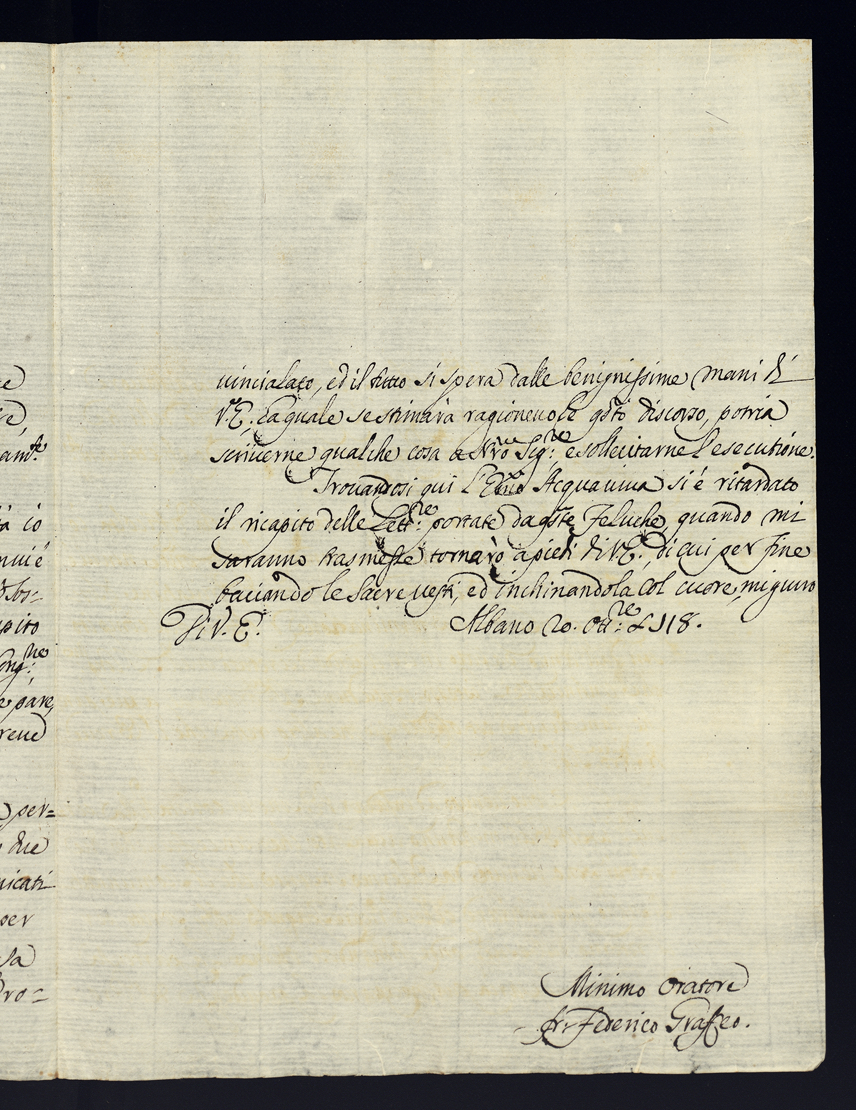 am.te
tà io
nvi è
pito
e pare,
reve
per=
due
nicati
per
sa
Pro=
vincialato, ed il tutto si spera dalle benignissime mani di
V.E., la quale se stimarà ragionevole qsto discorso, potria
scriverne qualche cosa a Nro Sig.re e sollecitarne l'esecutione.
Trovandosi qui l'Emo Acquaviva si è ritardato
il ricapito delle Lett.re portate da qste Feluche, quando mi
saranno trasmesse tornarò a piedi di V.E., di cui per fine
baciando le Sacre vesti, ed inchinandola col cuore, mi giuro
Di V. E. Albano 20. Ott.re 1718.
Minimo Oratore
fr. Federico Graffeo.